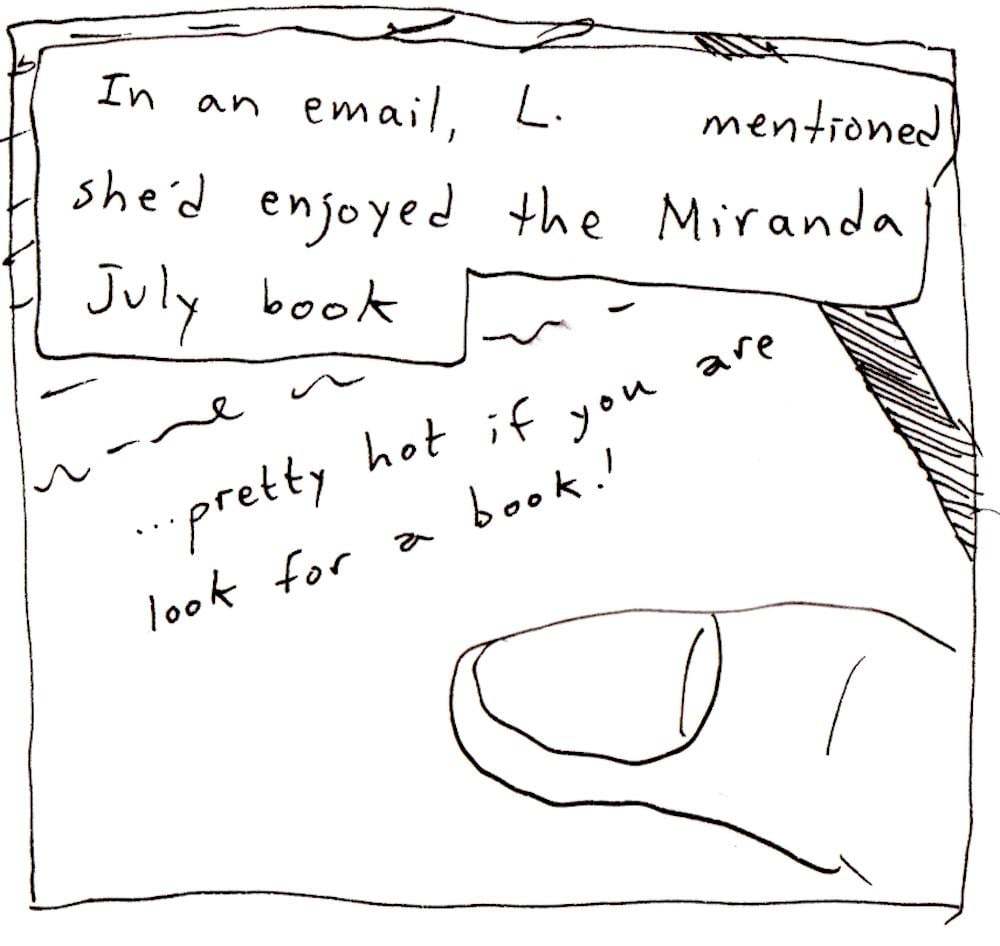 In an email, L. mentioned
she'd enjoyed the Miranda
July book
...pretty hot if you are
look for a book!